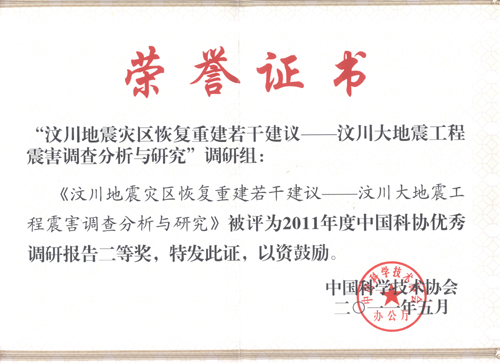 荣誉证书
“汶川地震灾区恢复重建若干建议——汶川大地震工程
震害调查分析与研究”调研组：
《汶川地震灾区恢复重建若干建议——汶川大地震工
程震害调查分析与研究》被评为2011年度中国科协优秀
调研报告二等奖，特发此证，以资鼓励。
中国科学技术协会
二〇一一年五月
中国科学技术协会
办公厅